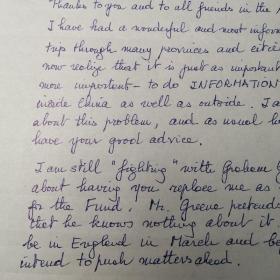 Thanks to you and to all friends in the
I have had a wonderful and most inform
trip through many provinces and cities
now realize that it is just as important
more important - to do INFORMATION
inside China as well as outside. I a
about this problem, and as usual ho
have your good advice.
I am still "fighting" with Graham G
about having you replace me as
for the Fund. Mr. Greene pretends
that he knows nothing about it
be in England in March and be
intend to push matters ahead.